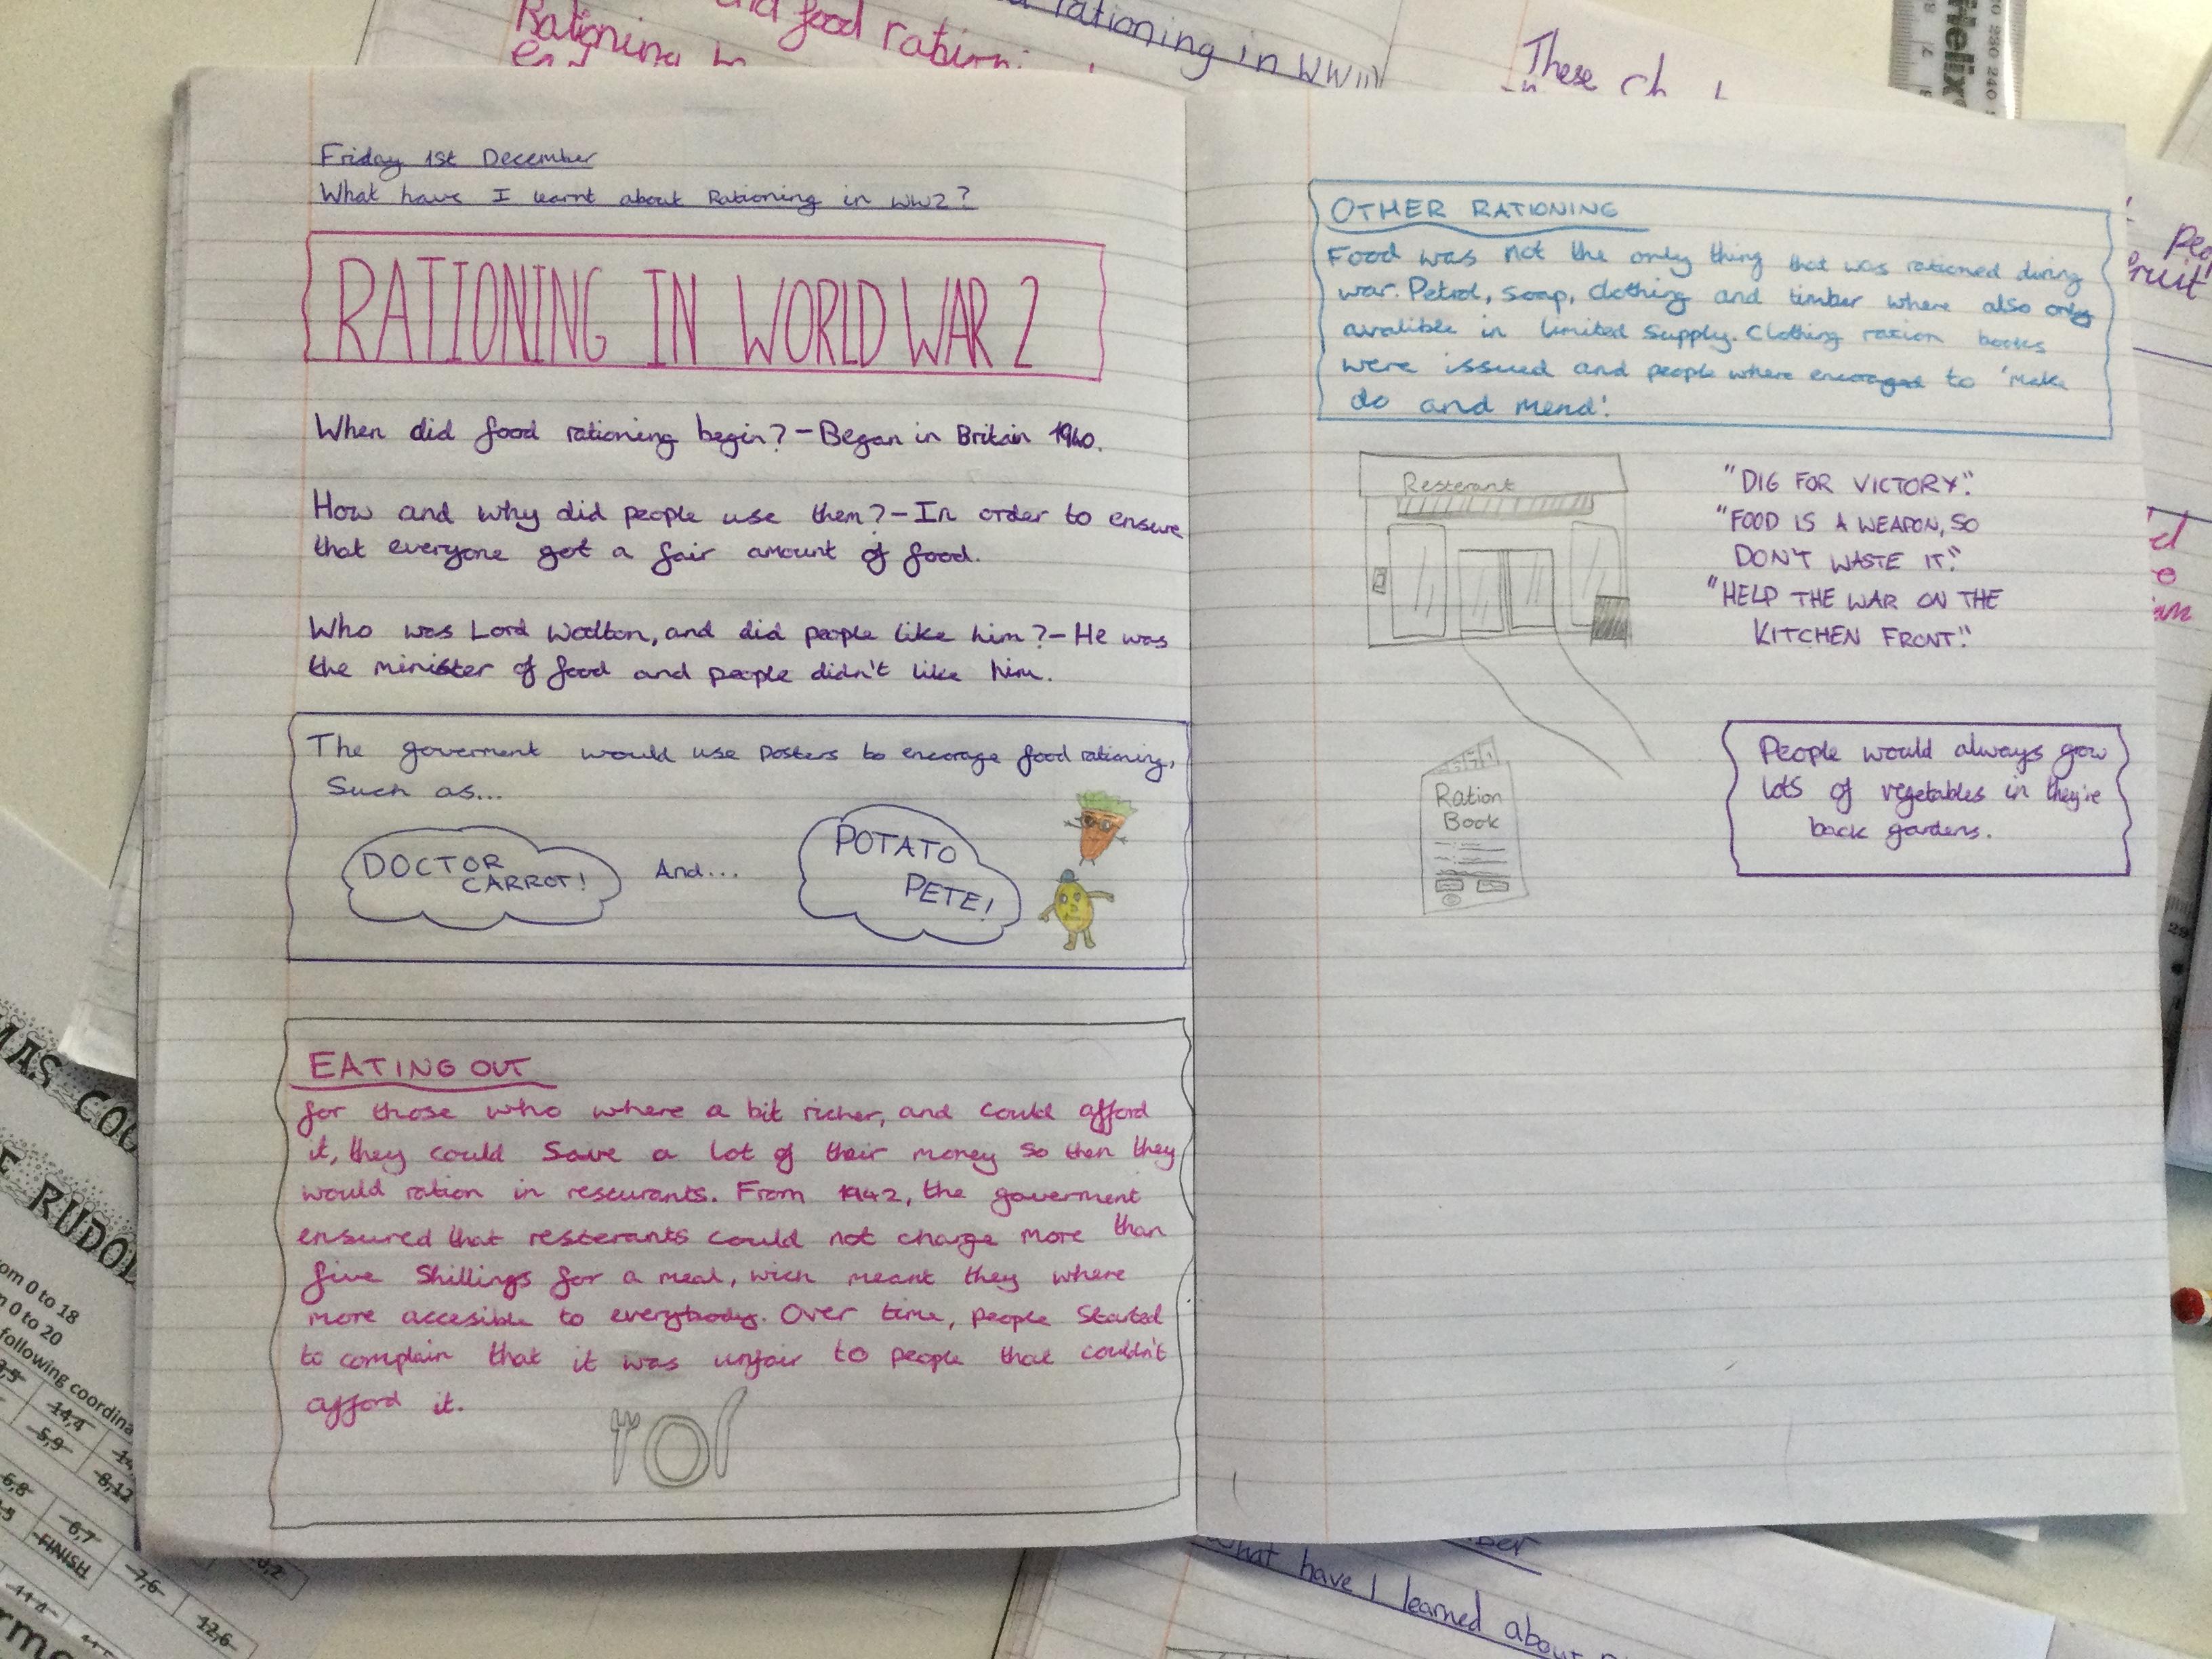 Friday 1st December
What have I learnt about Rationing in WW2?
RATIONING IN WORLD WAR 2
When did food rationing begin? - Began in Britain 1940.
How and why did people use them? - In order to ensure
that everyone got a fair amount of food.
Who was Lord Woolton, and did people like him? - He was
the minister of food and people didn't like him.
The goverment would use posters to encorage food rationing,
Such as...
DOCTOR
CARROT!
And...
POTATO
PETE!
EATING OUT
for those who where a bit richer, and could afford
it, they could save a lot of their money so then they
would ration in resturants. From 1942, the goverment
ensured that resterants could not charge more than
five Shillings for a meal, wich meant they where
more accesible to everybody. Over time, people started
to complain that it was unfair to people that couldn't
afford it.
OTHER RATIONING
Food was not the only thing that was rationed during
war. Petrol, soap, clothing and timber where also only
avalible in limited supply. Clothing ration books
were issued and people where encoraged to 'make
do and mend'.
Resterant
"DIG FOR VICTORY."
"FOOD IS A WEAPON, SO
DON'T WASTE IT."
"HELP THE WAR ON THE
KITCHEN FRONT."
Ration
Book
People would always grow
lots of vegetables in they're
back gardens.
Rationing
and food
rationing in WWII
These
Helix
230 240
fruit
RUDOL
from 0 to 18
0 to 20
following coordina
-14,4
-5,9
-8,12
-6,8
-6,7
-FINISH
-7,6
12,6
What have I learned about